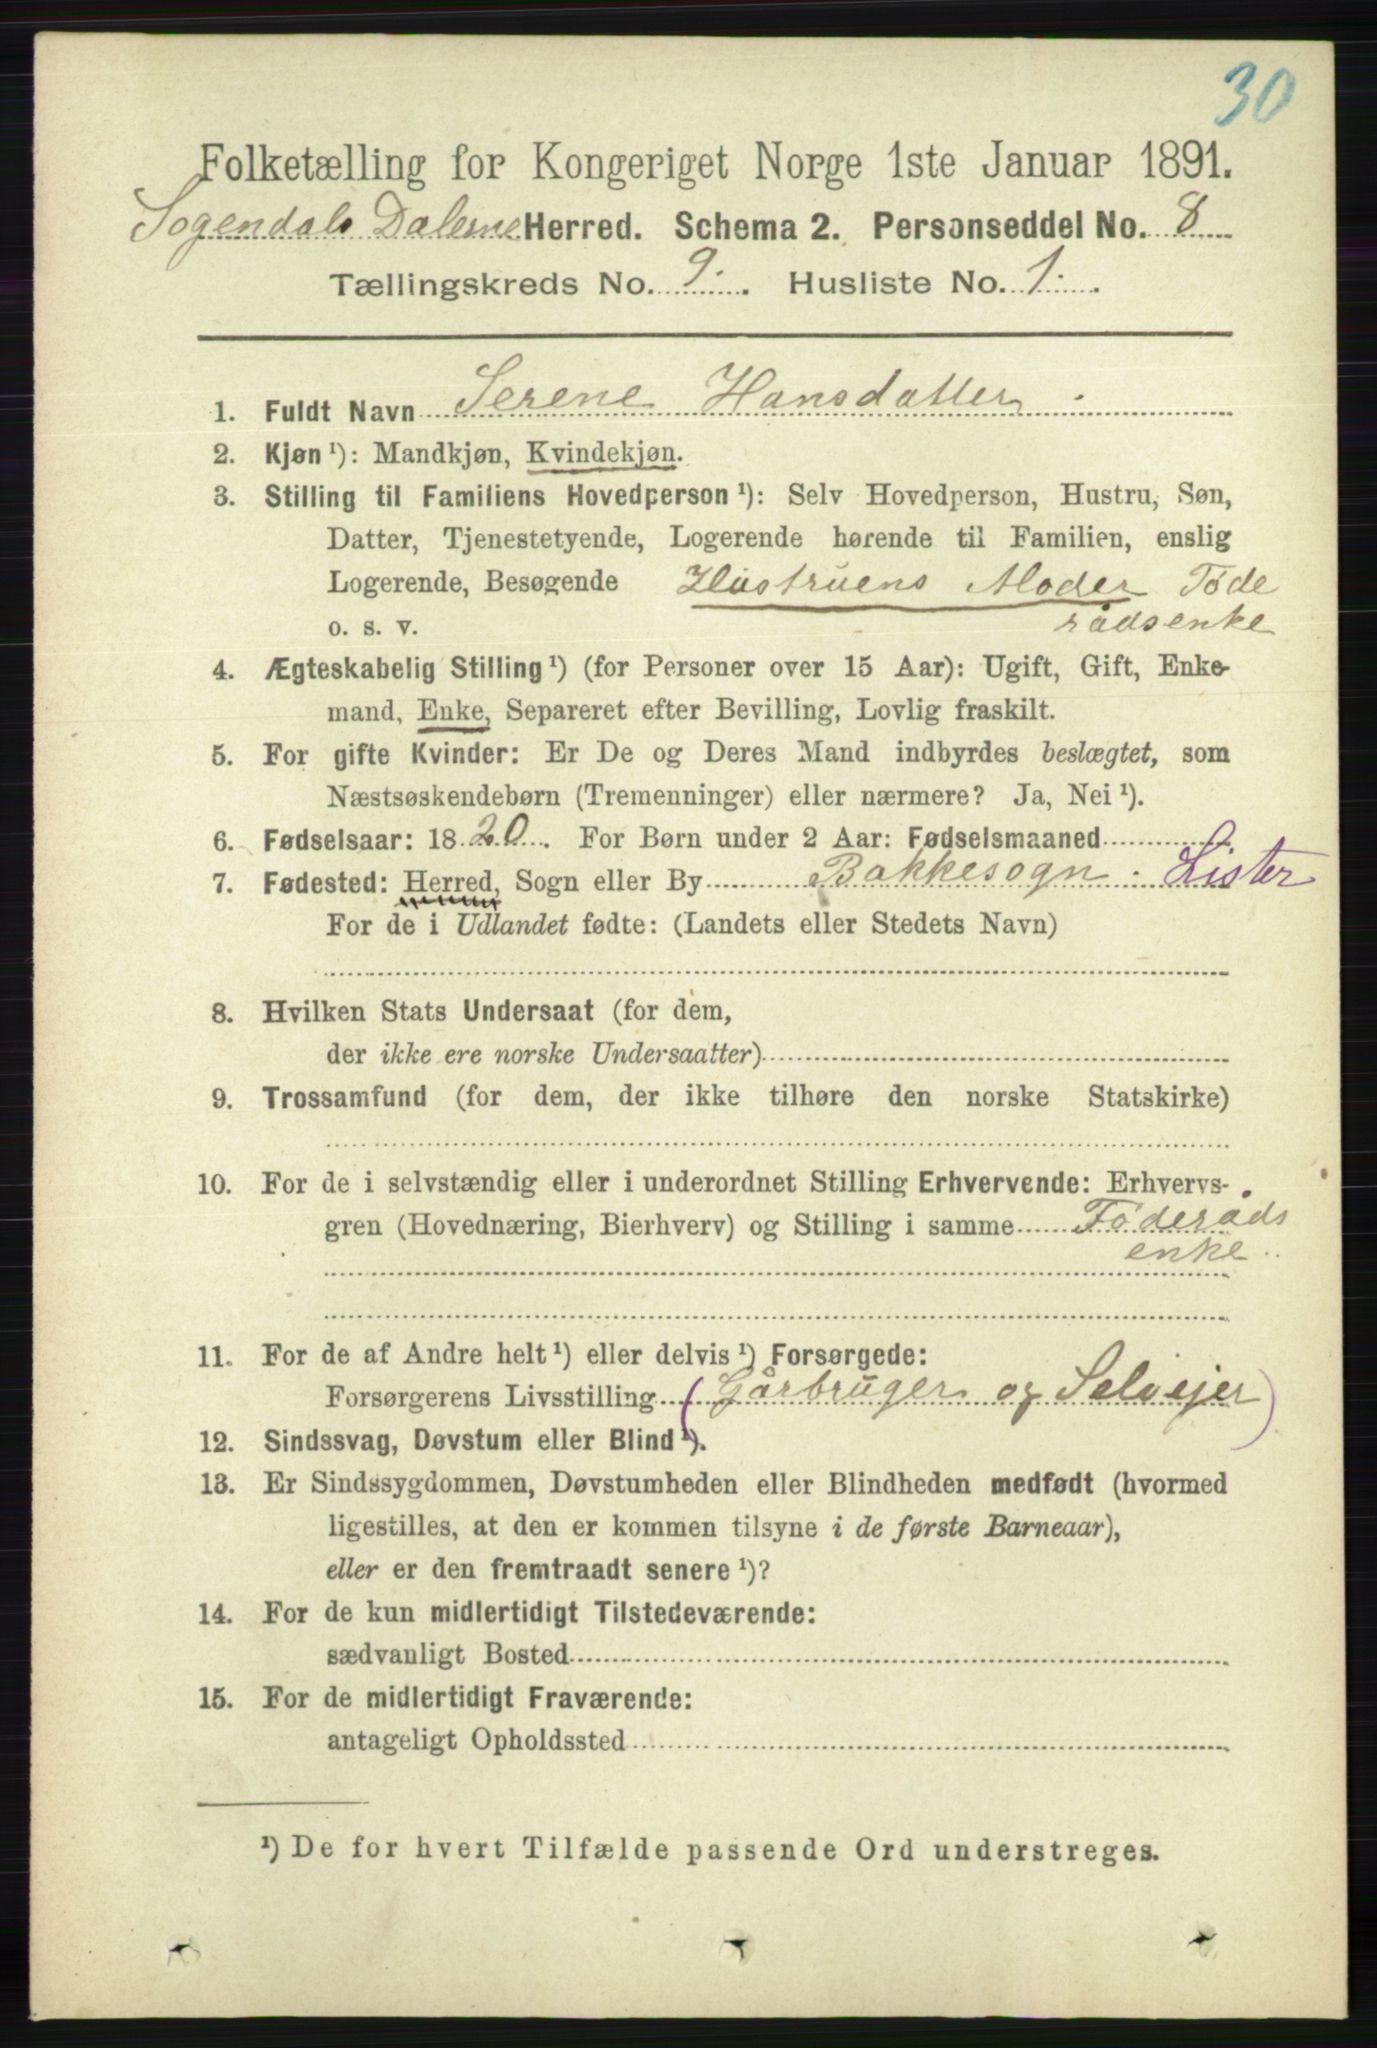 30
Folketælling for Kongeriget Norge 1ste Januar 1891.
Sogendals Dalerne Herred. Schema 2. Personseddel No. 8
Tællingskreds No. 9. Husliste No. 1.
1. Fuldt Navn Serene Hansdatter
2. Kjøn ¹): Mandkjøn, Kvindekjøn.
3. Stilling til Familiens Hovedperson ¹): Selv Hovedperson, Hustru, Søn,
Datter, Tjenestetyende, Logerende hørende til Familien, enslig
Logerende, Besøgende Hustruens Moder Föde
o. s. v. rådsenke
4. Ægteskabelig Stilling ¹) (for Personer over 15 Aar): Ugift, Gift, Enke-
mand, Enke, Separeret efter Bevilling, Lovlig fraskilt.
5. For gifte Kvinder: Er De og Deres Mand indbyrdes beslægtet, som
Næstsøskendebørn (Tremenninger) eller nærmere? Ja, Nei ¹).
6. Fødselsaar: 1820. For Børn under 2 Aar: Fødselsmaaned
7. Fødested: Herred, Sogn eller By Bakkesogn. Lister
For de i Udlandet fødte: (Landets eller Stedets Navn)
8. Hvilken Stats Undersaat (for dem,
der ikke ere norske Undersaatter)
9. Trossamfund (for dem, der ikke tilhøre den norske Statskirke)
10. For de i selvstændig eller i underordnet Stilling Erhvervende: Erhvervs-
gren (Hovednæring, Bierhverv) og Stilling i samme Föderåds
enke
11. For de af Andre helt ¹) eller delvis ¹) Forsørgede:
Forsørgerens Livsstilling (Gårbruger og Selvejer)
12. Sindssvag, Døvstum eller Blind ¹).
13. Er Sindssygdommen, Døvstumheden eller Blindheden medfødt (hvormed
ligestilles, at den er kommen tilsyne i de første Barneaar),
eller er den fremtraadt senere ¹)?
14. For de kun midlertidigt Tilstedeværende:
sædvanligt Bosted
15. For de midlertidigt Fraværende:
antageligt Opholdssted
¹) De for hvert Tilfælde passende Ord understreges.